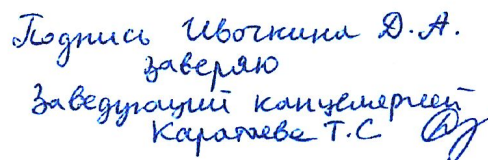 Подпись Ивочкина Д. А.
заверяю
Заведующий канцелярией
Каратаева Т. С